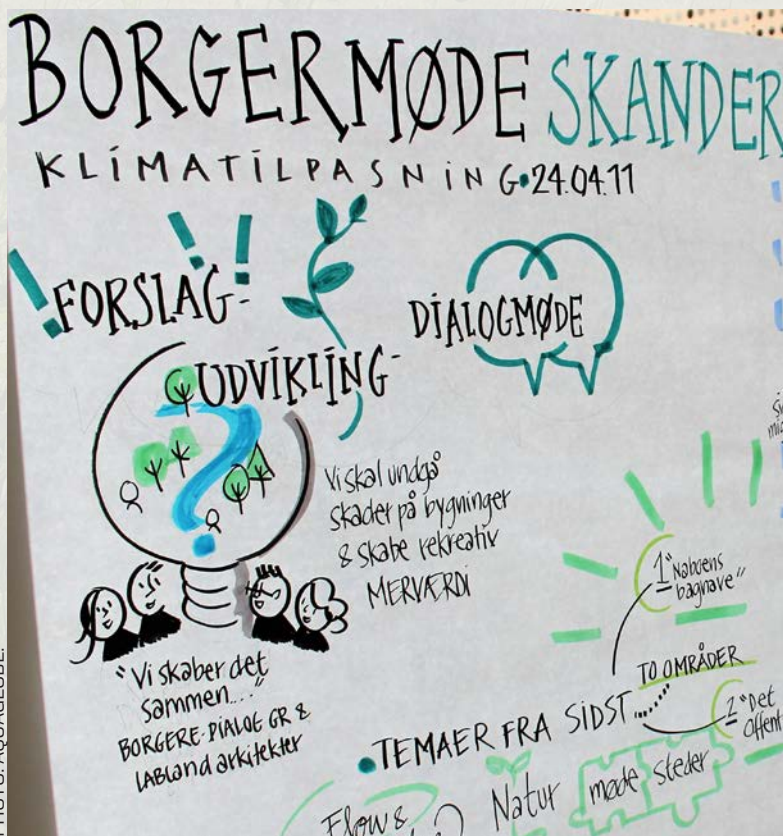 BORGERMØDE SKANDER
KLIMATILPASNING • 24.04.11
FORSLAG-
UDVIKLING-
DIALOGMØDE
Vi skal undgå
skader på bygninger
& skabe rekreativ
MERVÆRDI
"Vi skaber det
sammen..."
BORGERE-DIALOG GR &
LABLAND arkitekter
1 "Naboens
baghave"
TO OMRÅDER
2 "Det
Offent
• TEMAER FRA SIDST
Flow &
Natur
møde steder
PHOTO: AQUAGLOBE.